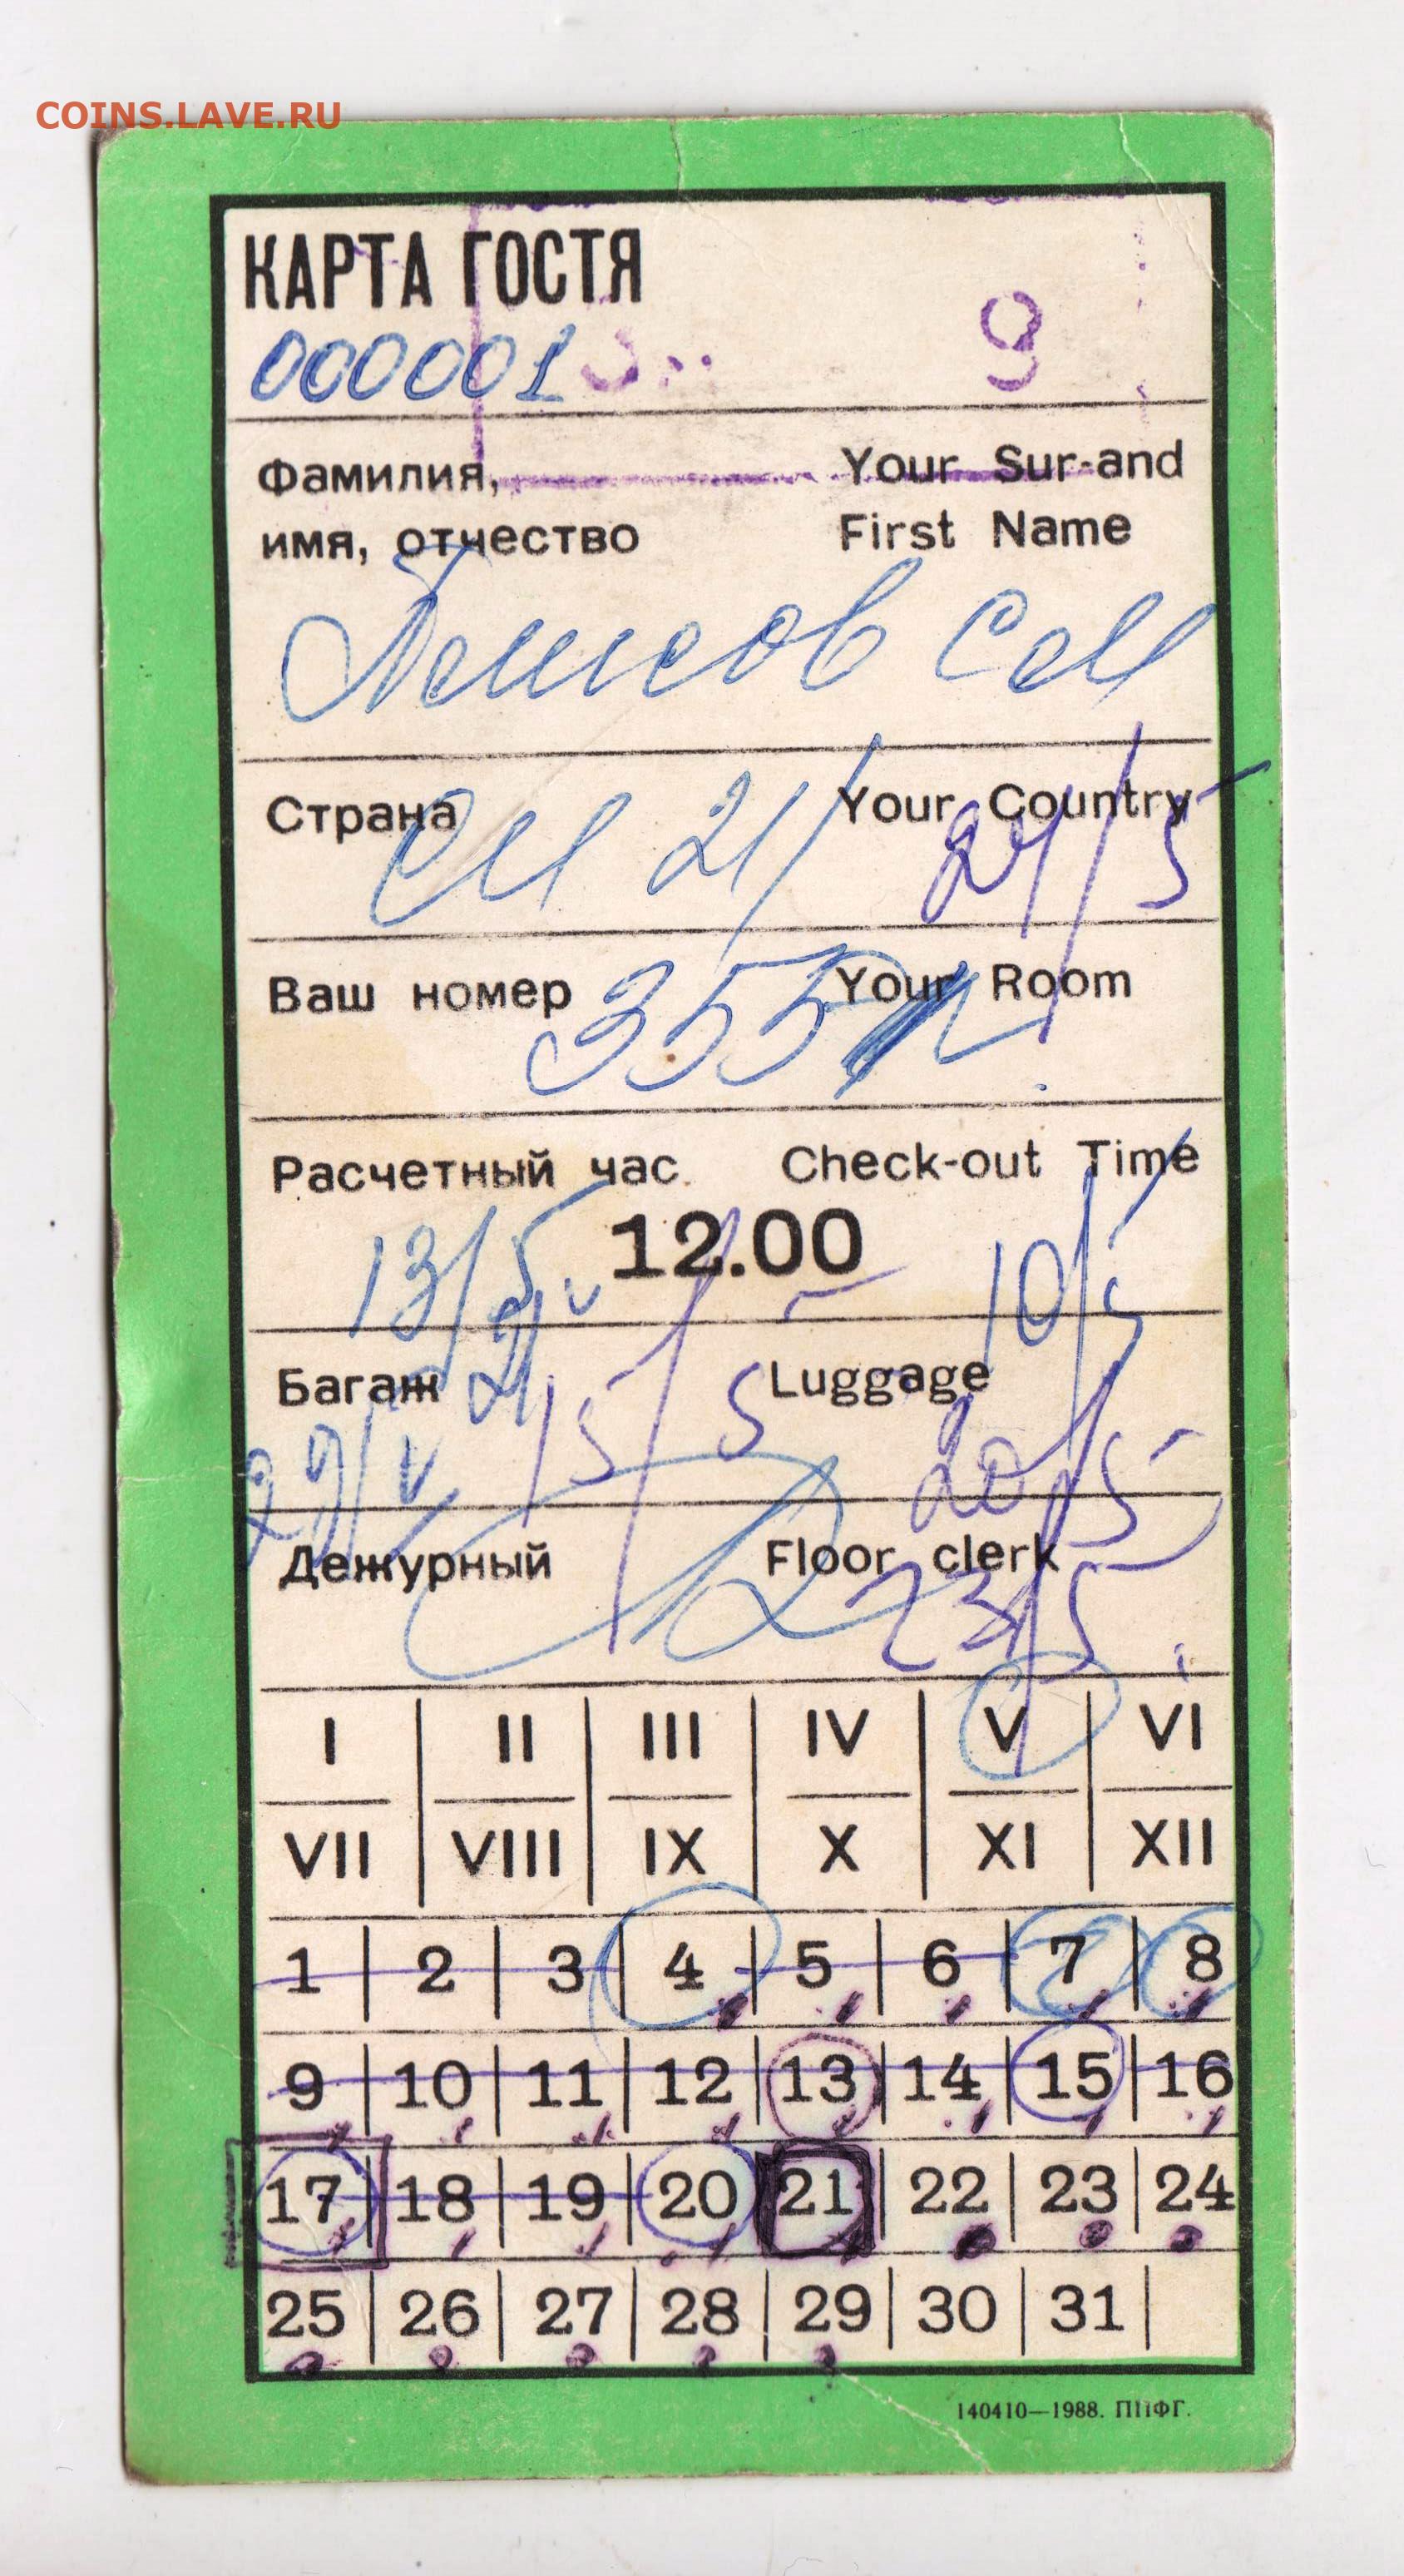 COINS.LAVE.RU
КАРТА ГОСТЯ
000001 9
Фамилия, Your Sur-and
имя, отчество First Name
Страна Your Country
21/ 24/5
Ваш номер Your Room
355
Расчетный час. Check-out Time
12.00
13/5 10/5
Багаж Luggage
29/V 15/5 20/5
Дежурный Floor clerk
23/5
I II III IV V VI
VII VIII IX X XI XII
1 2 3 4 5 6 7 8
9 10 11 12 13 14 15 16
17 18 19 20 21 22 23 24
25 26 27 28 29 30 31
140410—1988. ППФГ.